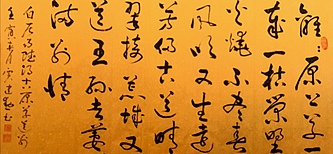 離〻原上草一
歲一枯榮野
火燒不盡春
風吹又生遠
芳侵古道晴
翠接荒城又
送王孫去萋〻
滿別情
白居易詩賦得古原草送別
壬寅